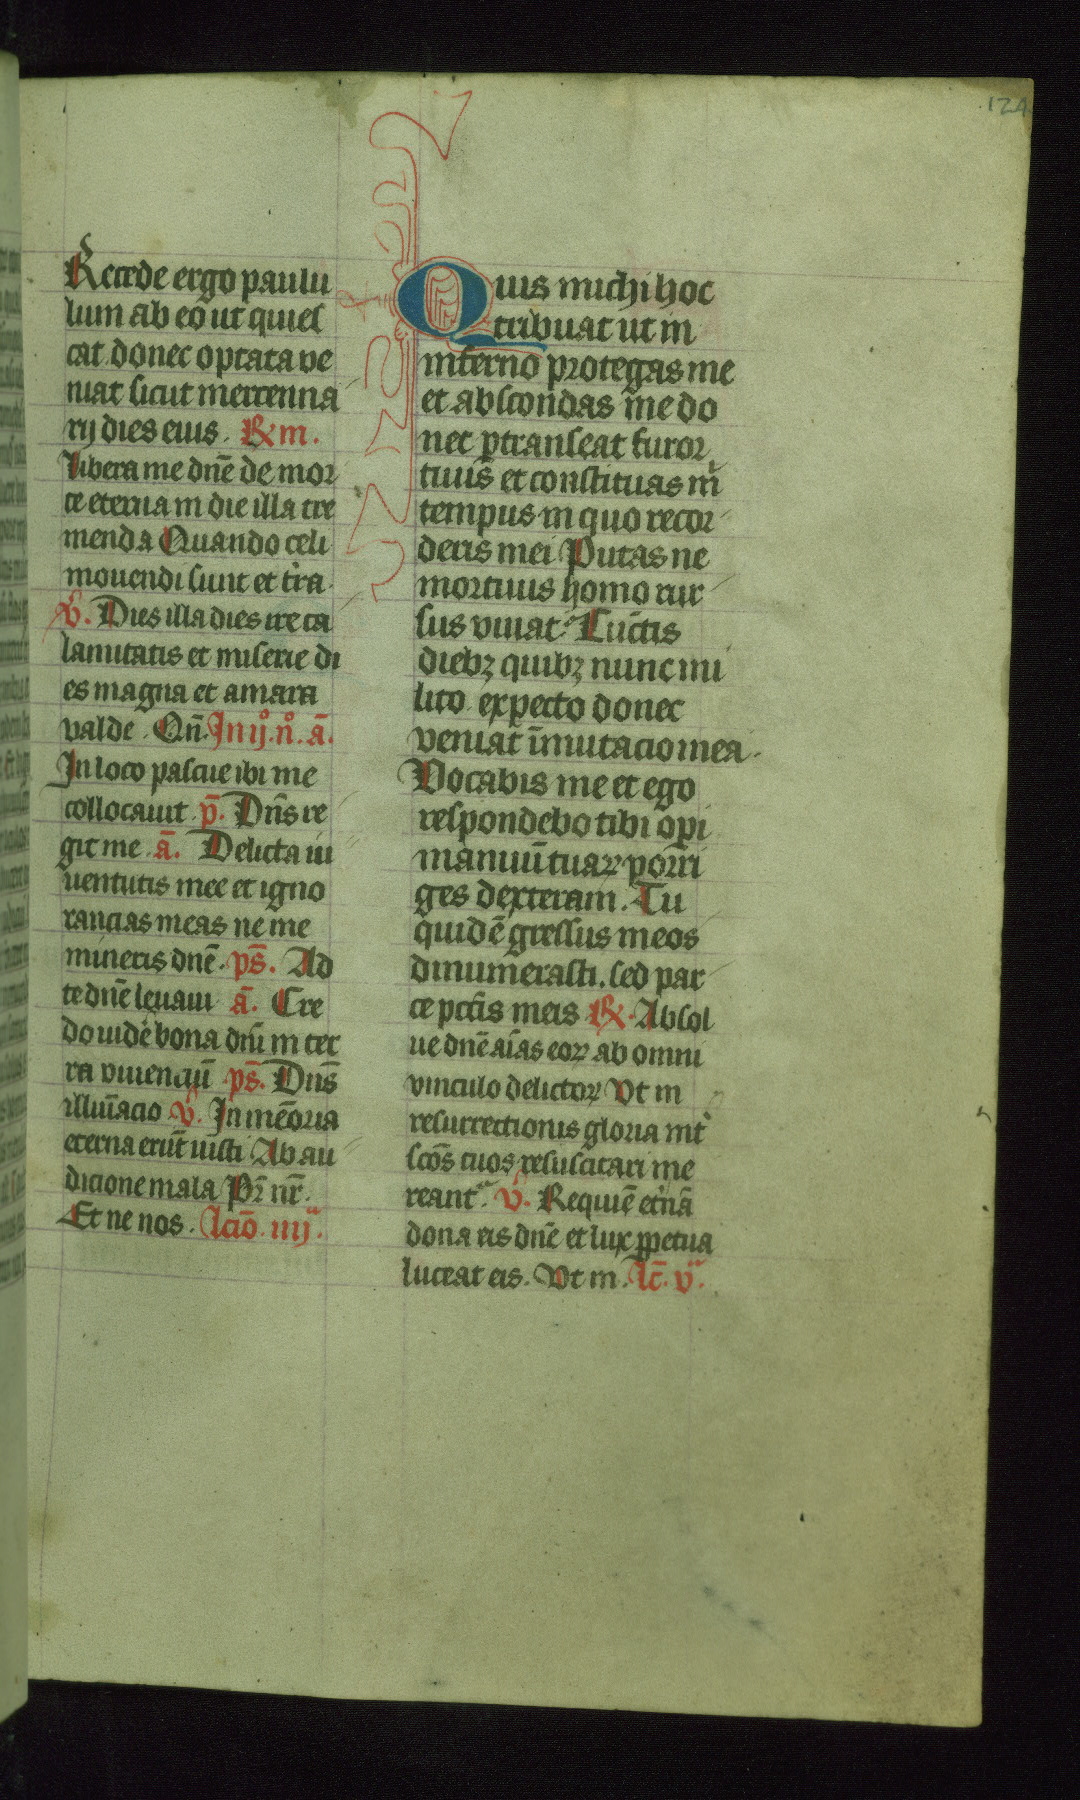 124
Recede ergo paulu
lum ab eo ut quies
cat donec optata ve
niat sicut mercenna
rij dies eius. R̃ m.
Libera me dnē de mor
te eterna in die illa tre
menda Quando celi
movendi sunt et tra.
V̊. Dies illa dies ire ca
lamitatis et miserie di
es magna et amara
valde. Qn̄. In ijº. nº. ā.
In loco pascue ibi me
collocavit p̄. Dn̄s re
git me ā. Delicta iu
ventutis mee et igno
rancias meas ne me
mineris dnē. ps̄. Ad
te dnē levavi ā. Cre
do videre bona dni in ter
ra viventiū ps̄. Dns̄
illuīacio V̊. In mēoria
eterna erūt iusti Ab au
dicione mala Pr̄ nr̄.
Et ne nos. Lciō. iiij.
Quis michi hoc
tribuat ut in
inferno protegas me
et abscondas me do
nec ptranseat furor
tuus et constituas m
tempus in quo recor
deris mei Putas ne
mortuus homo rur
sus vivat Cunctis
diebꝫ quibꝫ nunc mi
lito expecto donec
veniat īmutacio mea.
Vocabis me et ego
respondebo tibi opi
manuū tuaꝝ porri
ges dexteram. Tu
quidē gressus meos
dinumerasti. sed par
ce pctīs meis R̃. Absol
ve dnē aīas eoꝝ ab omni
vinculo delictoꝝ Vt in
resurrectionis gloria int
scōs tuos resuscitari me
reant V̊. Requiē etnā
dona eis dnē et lux ꝑpetua
luceat eis. Vt in. Lc̄. v.